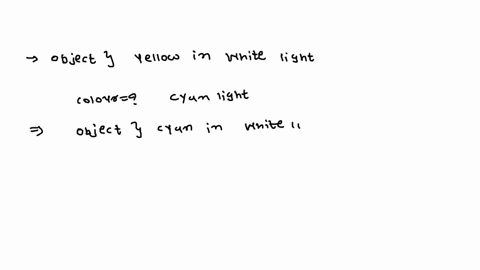 → object } yellow in white light
colour=? cyan light
⇒ object } cyan in white l